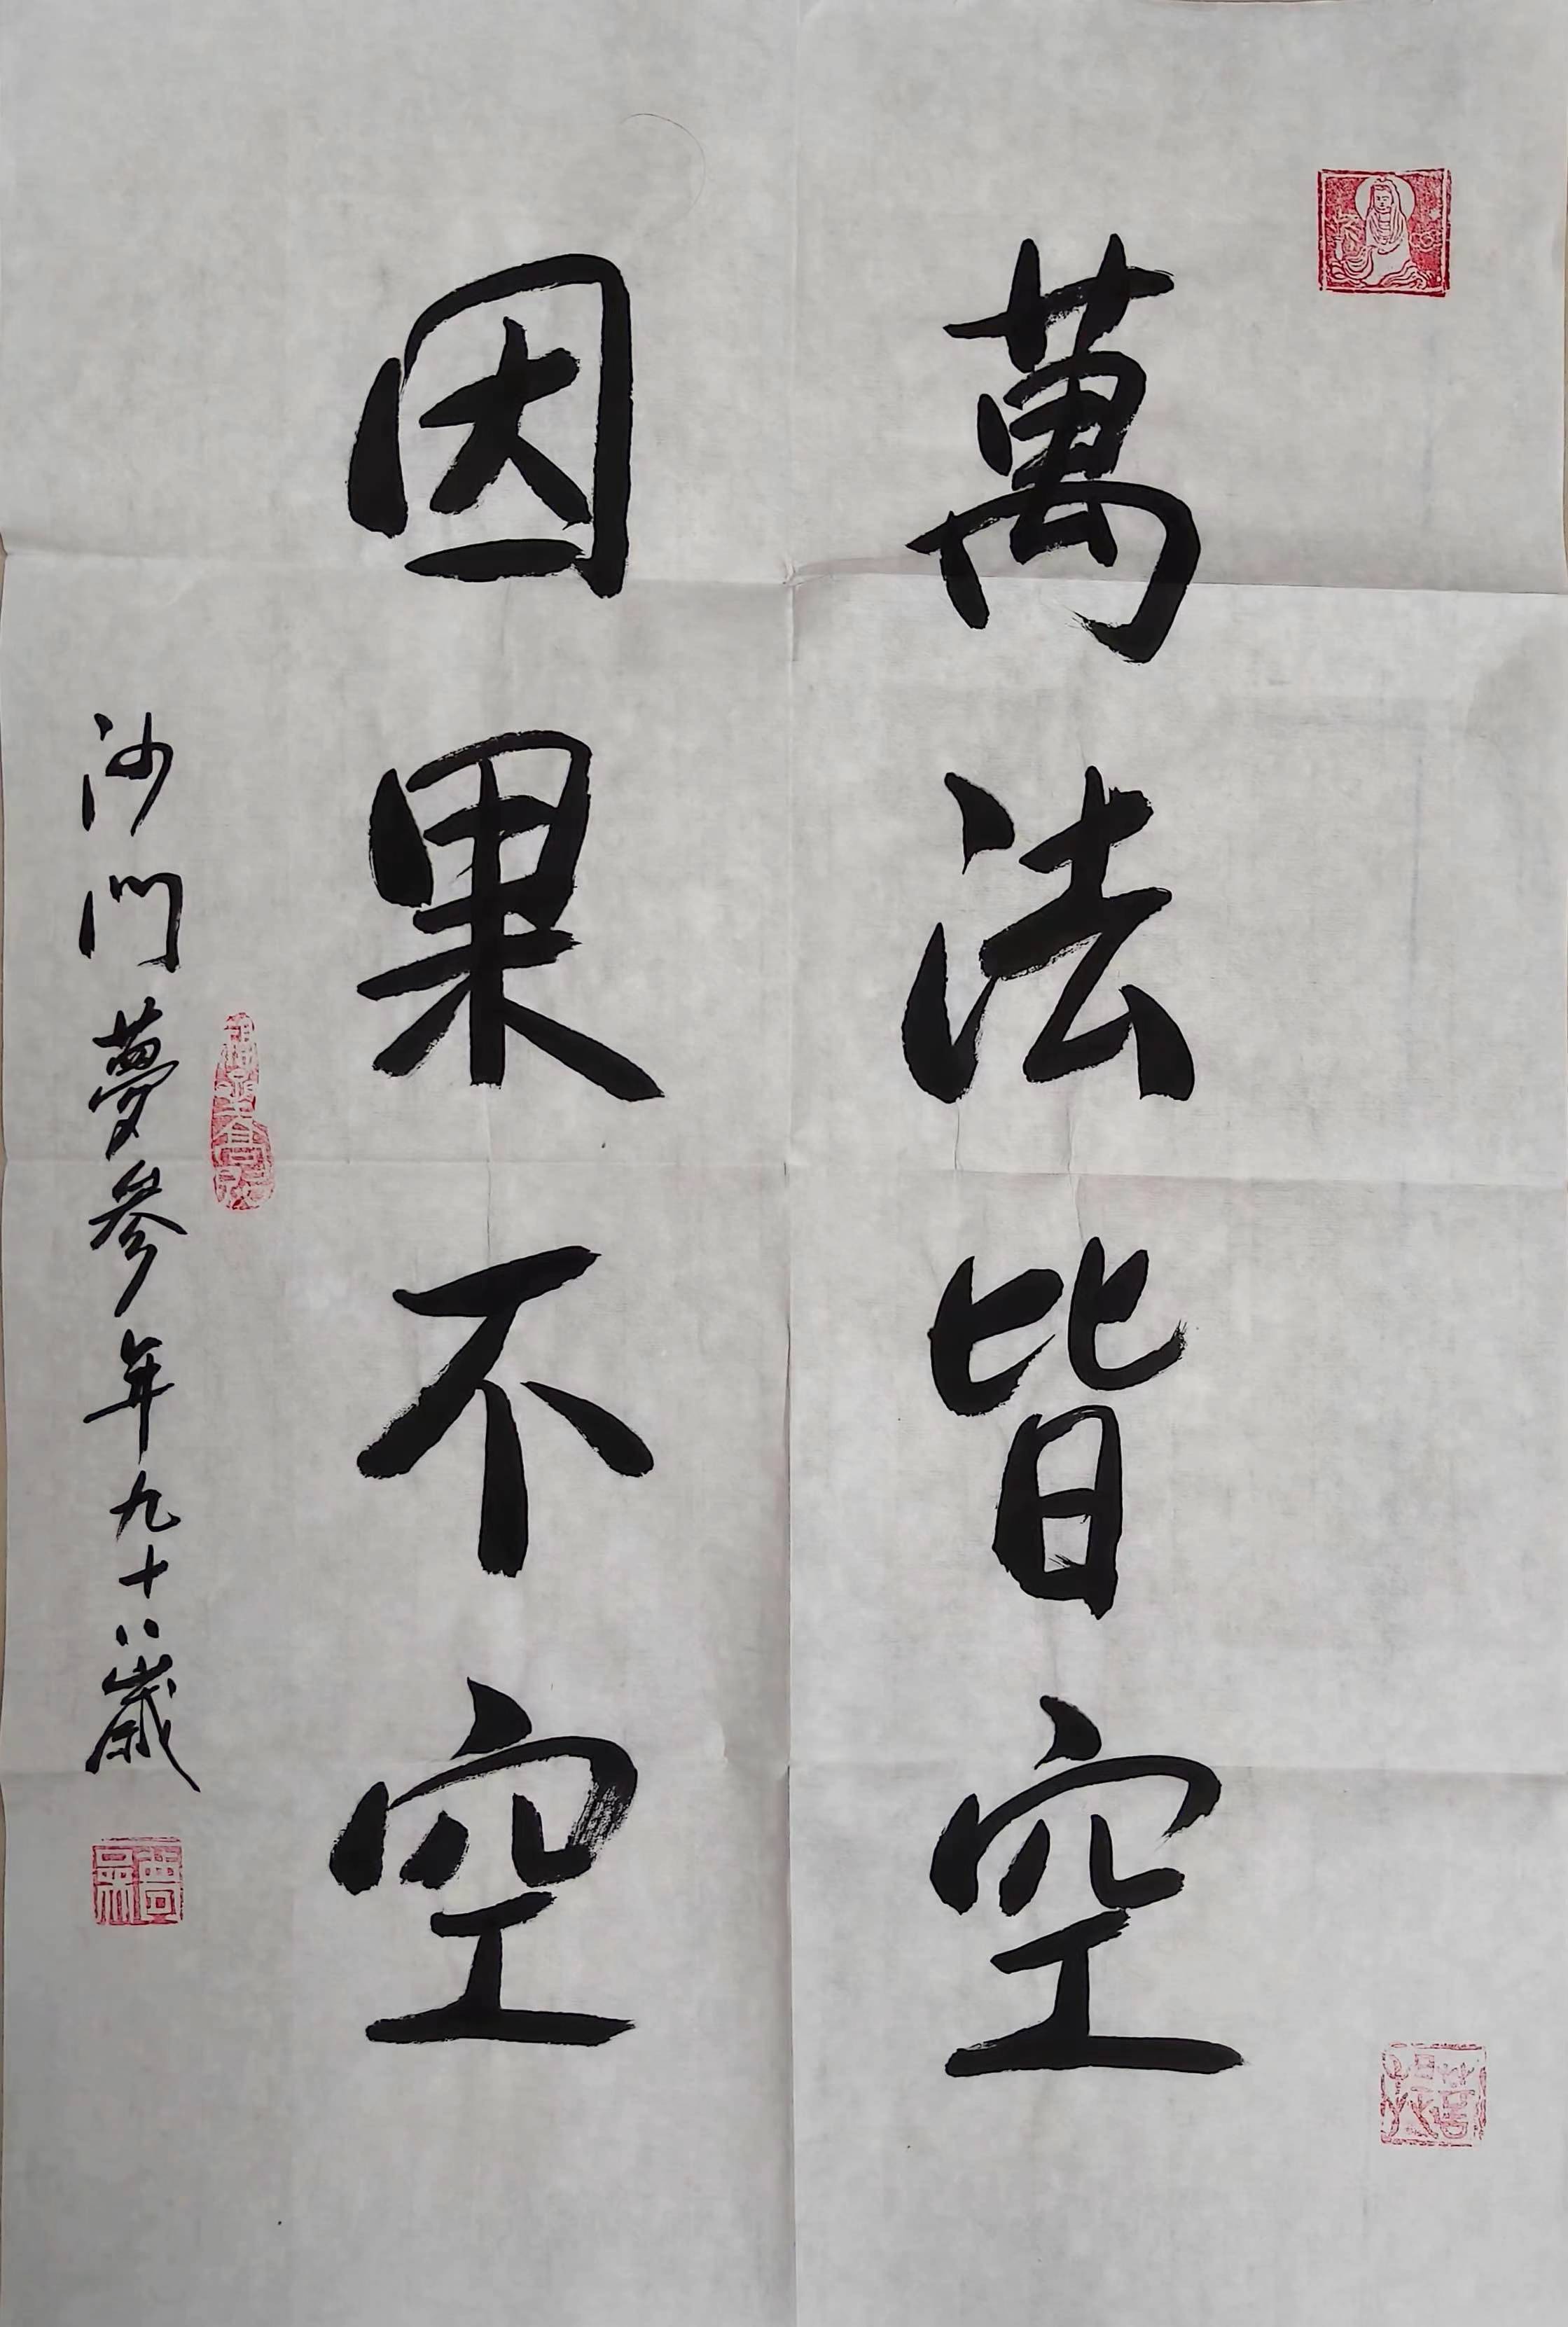 萬法皆空
因果不空
沙門夢參年九十八歲